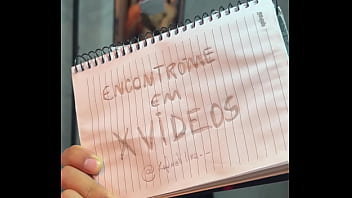 ENCONTROME
EM
XVIDEOS